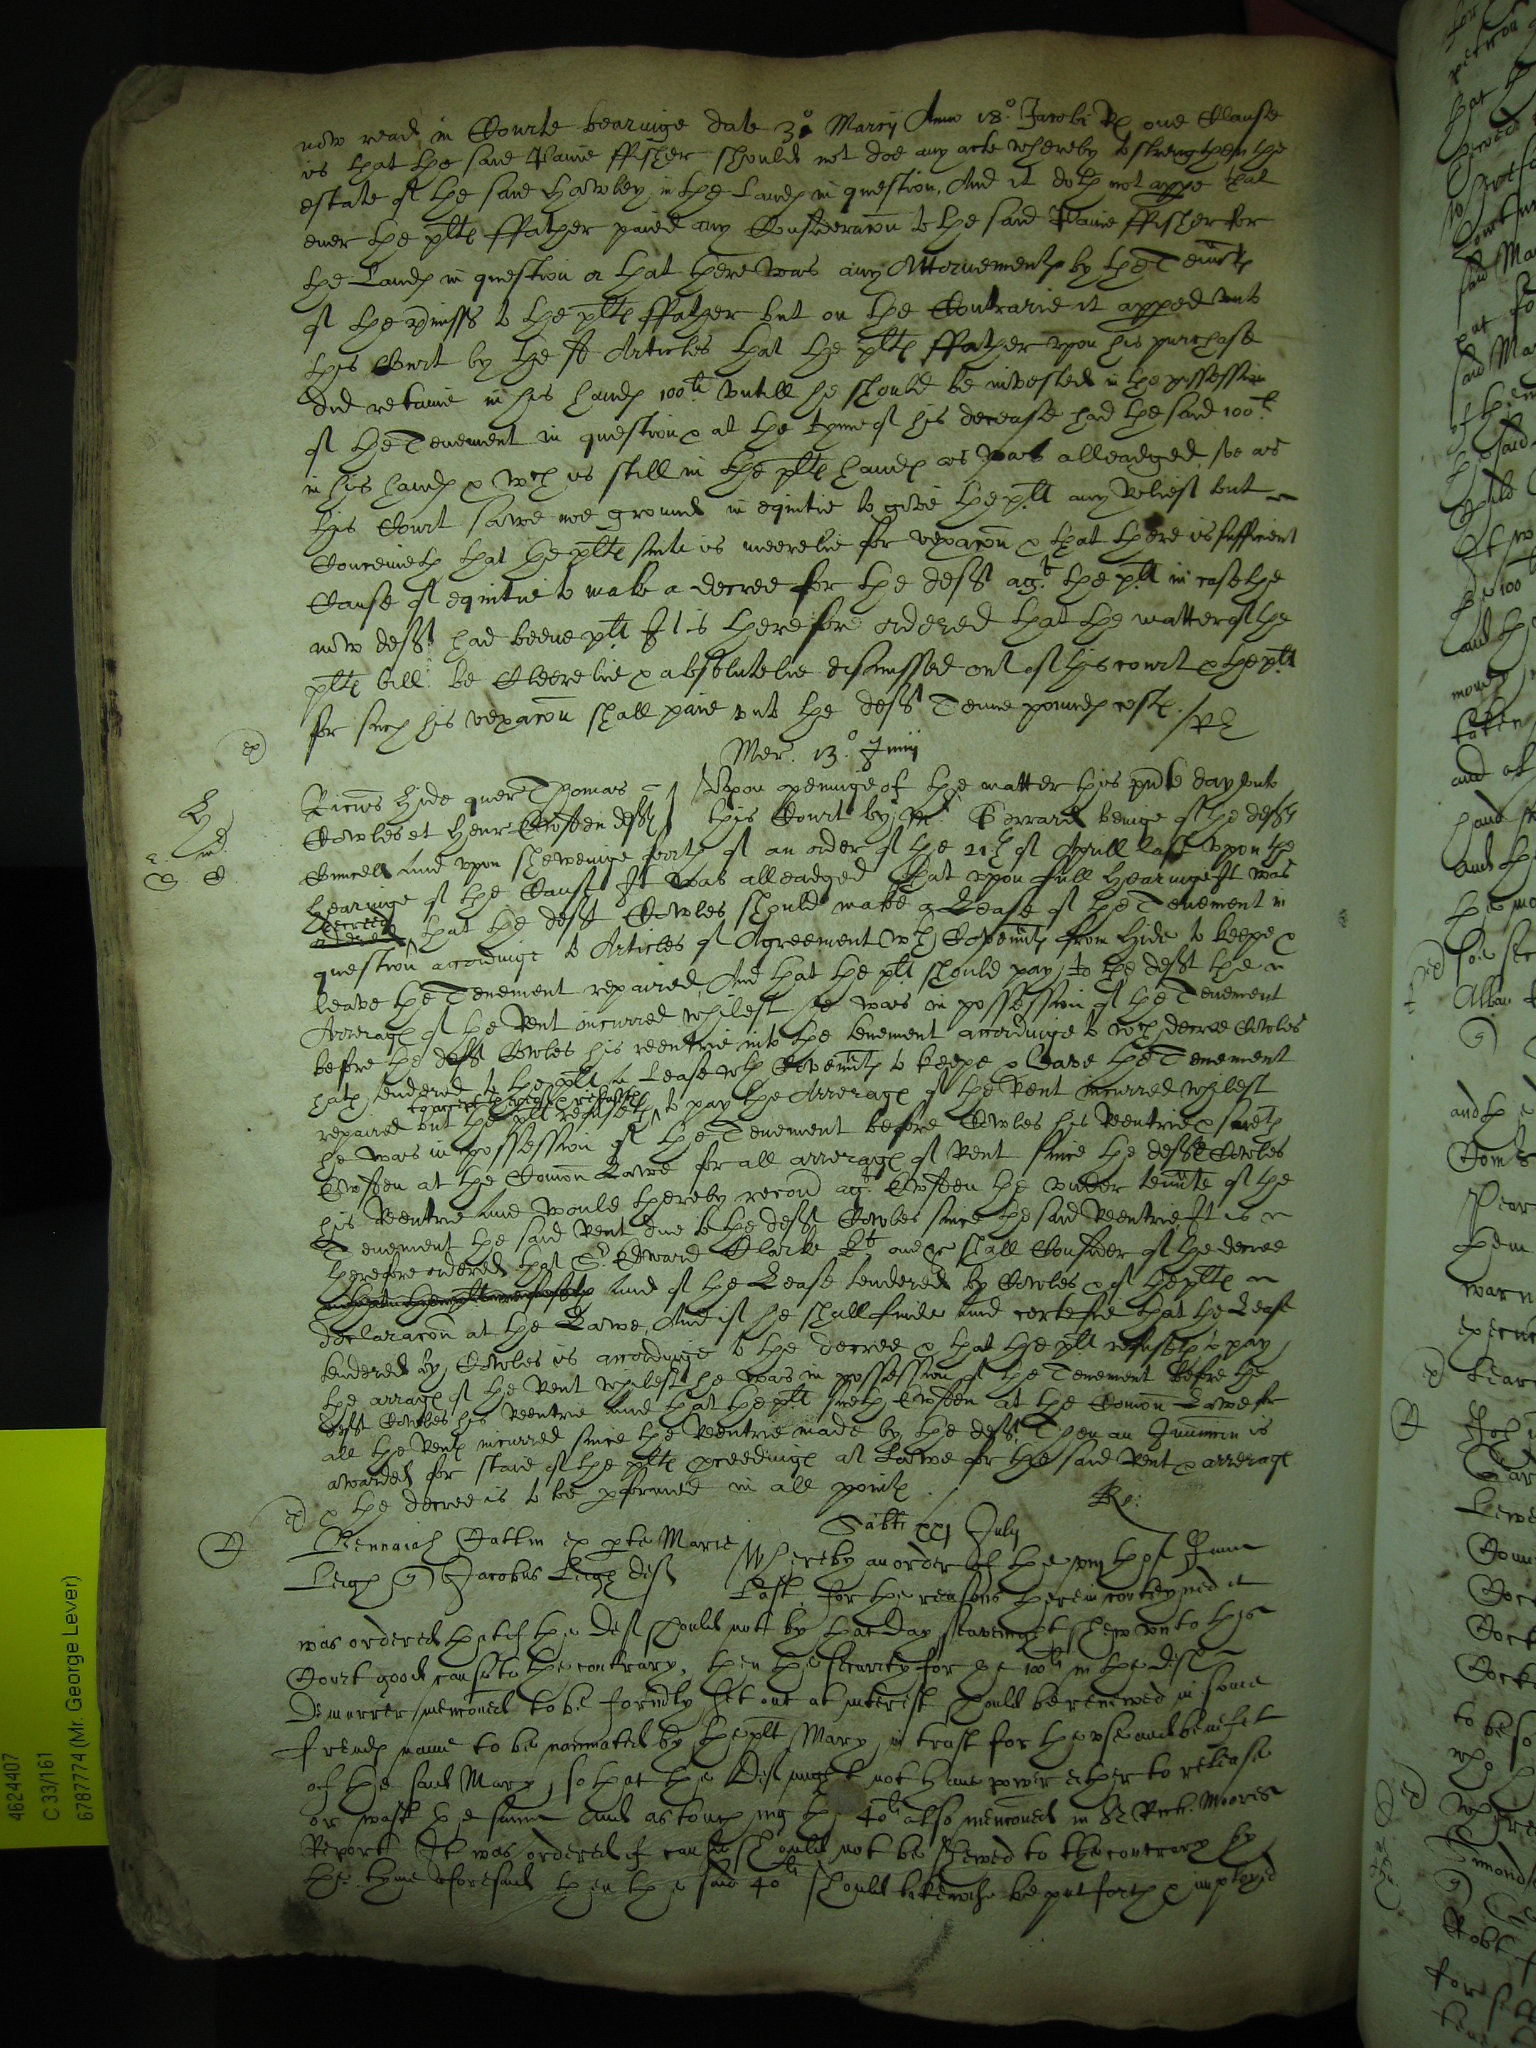 now read in Courte bearinge date 3o Marcij Anno 18o Jacobi R one Clause
is that the said Paine ffisher should not doe any acte whereby to strengthen the
estate of the said Hawley in the Lands in question, And it doth not appe that
ever the plts ffather paied any Consideracon to the said Paine ffisher for
the Lands in question or that there was any Attornements by the Tennts
of the pmisss to the plts ffather but on the Contrarie it apped unto
this Court by the Articles that the plts ffather upon his purchase
did retaine in his hands 100li untill he should be invested in the possession
of the Tenement in question & at the tyme of his decease had the said 100li
in his hands & wch is still in the plts hands as was alleadged, soe as
this Court sawe noe ground in equitie to give the plt any Reliefe but
Conceiveth that the plts suite is meerelie for vexacon & that there is sufficient
Cause of equitie to make a decree for the deft agt the plt in case the
now deft had beene plt It is therefore ordered that the matter of the
plts bill be Cleerelie & absolutelie dismissed out of this court & the plt
for such his vexacon shall paie unto the deft Tenne pounds costs
Mer. 13o Junij
Ricus Hide quer Thomas Upon openinge of the matter this pnte day unto
Cowles et Henr Ewsten defts this Court by Mr Gerrard beinge of the defts
Councell And upon shewinge forth of an order of the 21th of Aprill last upon the
hearinge of the Cause It was alleadged that upon full hearinge It was
decreed
ordered that the deft Cowles should make a Lease of the Tenement in
question accordinge to Articles of Agreement wth Covennts from Hide to keepe &
leave the Tenement repaired, And that the plt should pay to the deft the
Arrerages of the Rent incurred whilest he was in possession of the Tenement
before the deft Cowles his reentrie into the tenement accordinge to wch decree Cowles
hath tendered to the plt a Lease wth Covennts to keepe & leave the Tenement
repaired but the plt refuseth to pay the Arrerages of the Rent incurred whilest
he was in possession of the Tenement before Cowles his Reentrie & sueth
Ewsten at the Comon Lawe for all arrerages of Rent since the deft Cowles
his Reentrie And would thereby recover agt Ewsten the under tennte of the
Tenement the said Rent due to the deft Cowles since the said Reentrie It is
therefore ordered that Sr Edward Clarke Kt one &c shall Consider of the decree
And of the Lease tendered by Cowles & of the plts
declaracon at the Lawe, And if he shall finde and certefie that the Lease
tendered by Cowles is accordinge to the decree & that the plt refuseth to pay
the arrages of the Rent whilest he was in possession of the Tenement before the
deft Cowles his Reentrie And that the plt sueth Ewsten at the Comon Lawe for
all the Rents incurred since the Reentrie made by the deft, Then an Iniunccon is
awarded for staie of the plts proceedings at Lawe for the said Rent & arrerages
& the decree is to be pformed in all points
Sabti xxj July
Cattin ex parte Marie Whereby an order of the of June
Leigh Jacobus Leigh deft Last, for the reasons therein conteyned it
was ordered that if the deft should not by that day seavenight shew unto this
Court good cause to the contrary, then the security for the 100li in the defts
demurrer menconed to be formerly set out at interest should be renewed in some
freinds name to be nominated by the plt Mary in trust for the use and benefit
of the said Mary, so that the deft might not have power either to release
or wast the same And as touching the 40li also menconed in Sr Rich. Moores
Report It was ordered if cause should not be shewed to the contrary by
the tyme aforesaid then the said 40li should likewise be put forth & imployed
4624407
C 33/161
6787774 (Mr. George Lever)